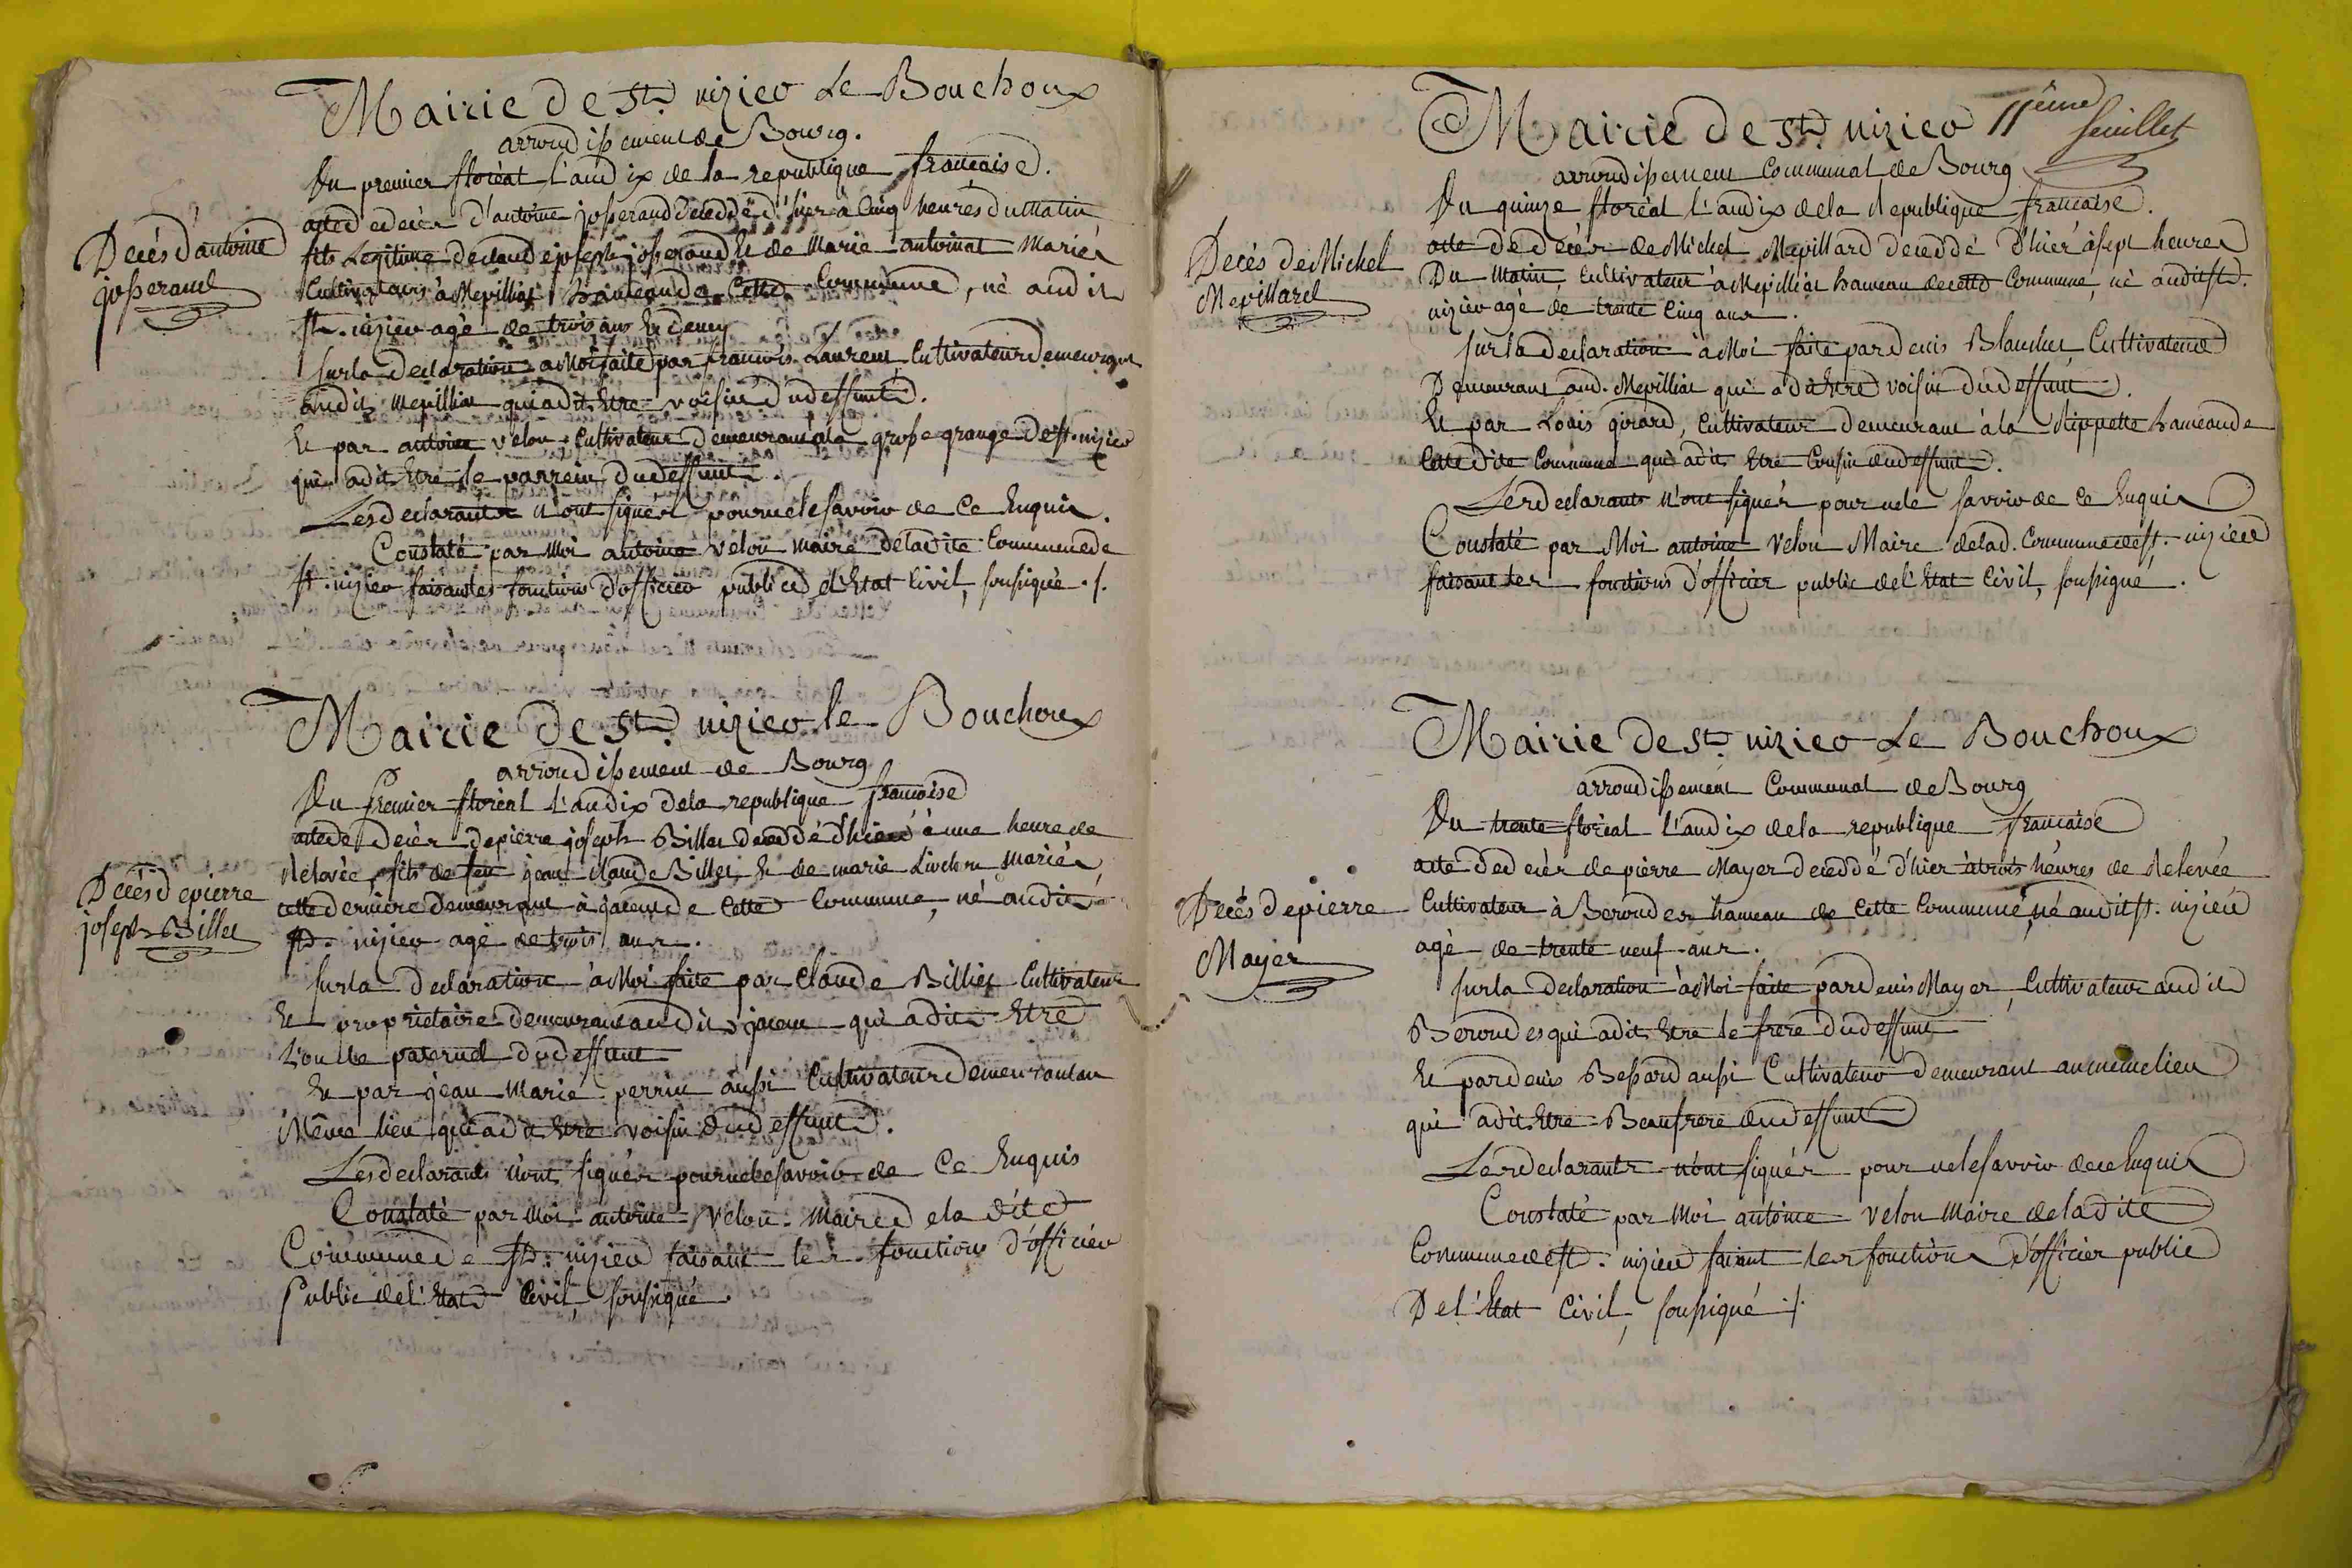 Mairie de St. nizier Le Bouchoux
arrondissement de Bourg.
Du premier floréal l'an dix de la republique francaise.
acte de decès d'antoine josserand decedé d'hier à Cinq heures du Matin
fils Legitime de claude joseph josserand Et de Marie antoinat Mariés
Cultivateurs à Mepilliat hameau de Cette Commune, né audit
St. nizier agé de trois ans Et demy
Sur la declaration a Moi faite par francois Laurent, Cultivateur demeurant
audit Mepilliat qui a dit Etre voisin du deffunt.
Et par antoine velon Cultivateur demeurant à la grosse grange de St. nizier
qui a dit Etre le parrein du deffunt.
Les declarants n'ont signés pour ne le savoir de Ce Enquis.
Constaté par Moi antoine velon maire de la dite Commune de
St. nizier faisant les fonctions d'officier public de l'Etat Civil, soussigné ./.
Decès d'antoine
josserand
Mairie de St. nizier le Bouchoux
arrondissement de Bourg
Du Premier floréal L'an dix de la republique francaise
acte de decès de pierre joseph Billet decedé d'hier à une heure de
Relevée, fils de feu jean Claude Billet Et de marie Mariés,
cette derniere demeurant à de Cette Commune, né audit
St. nizier agé de trois ans.
Sur la declaration à Moi faite par Claude Billiet Cultivateur
Et proprietaire demeurant audit qui a dit Etre
L'oncle paternel du deffunt
Et par jean Marie perrin aussi Cultivateur demeurant au
Même lieu qui a dit Etre voisin du deffunt.
Les declarants n'ont signés pour ne le savoir de Ce Enquis
Constaté par Moi antoine Velon Maire de la dite
Commune de St. nizier faisant les fonctions d'officier
Public de l'Etat Civil, soussigné.
Decès de pierre
joseph Billet
11eme
feuillet
Mairie de St. nizier
arrondissement Communal de Bourg
Du quinze floréal l'an dix de la Republique francaise.
acte de decès de Michel Mepillard decedé d'hier à sept heures
Du Matin, Cultivateur à Mepilliat hameau de cette Commune, né audit St.
nizier agé de trente Cinq ans.
Sur la declaration à Moi faite par denis Blanchet Cultivateur
Demeurant aud. Mepilliat qui a dit Etre voisin du deffunt.
Et par Louis girard, Cultivateur demeurant à la Rippette hameau de
Cette dite Commune qui a dit Etre Cousin du deffunt.
Les declarants n'ont signés pour ne le savoir de Ce Enquis
Constaté par Moi antoine Velon Maire de lad. Commune de St. nizier
faisant les fonctions d'officier public de l'Etat Civil, soussigné.
Decès de Michel
Mepillard
Mairie de St. nizier Le Bouchoux
arrondissement Communal de Bourg
Du trente floréal l'an dix de la republique francaise
acte de decès de pierre Mayer decedé d'hier à trois heures de Relevée
Cultivateur à Berondes hameau de Cette Commune, né audit St. nizier
agé de trente neuf ans.
Sur la declaration à Moi faite par denis Mayer, Cultivateur audit
Berondes qui a dit Etre le frere du deffunt
Et par denis Bessard aussi Cultivateur demeurant au meme lieu
qui a dit Etre Beaufrere du deffunt
Les declarants n'ont signés pour ne le savoir de ce Enquis
Constaté par Moi antoine velon Maire de la dite
Commune de St. nizier faisant les fonctions d'officier public
De l'Etat Civil, soussigné ./.
Decès de pierre
Mayer